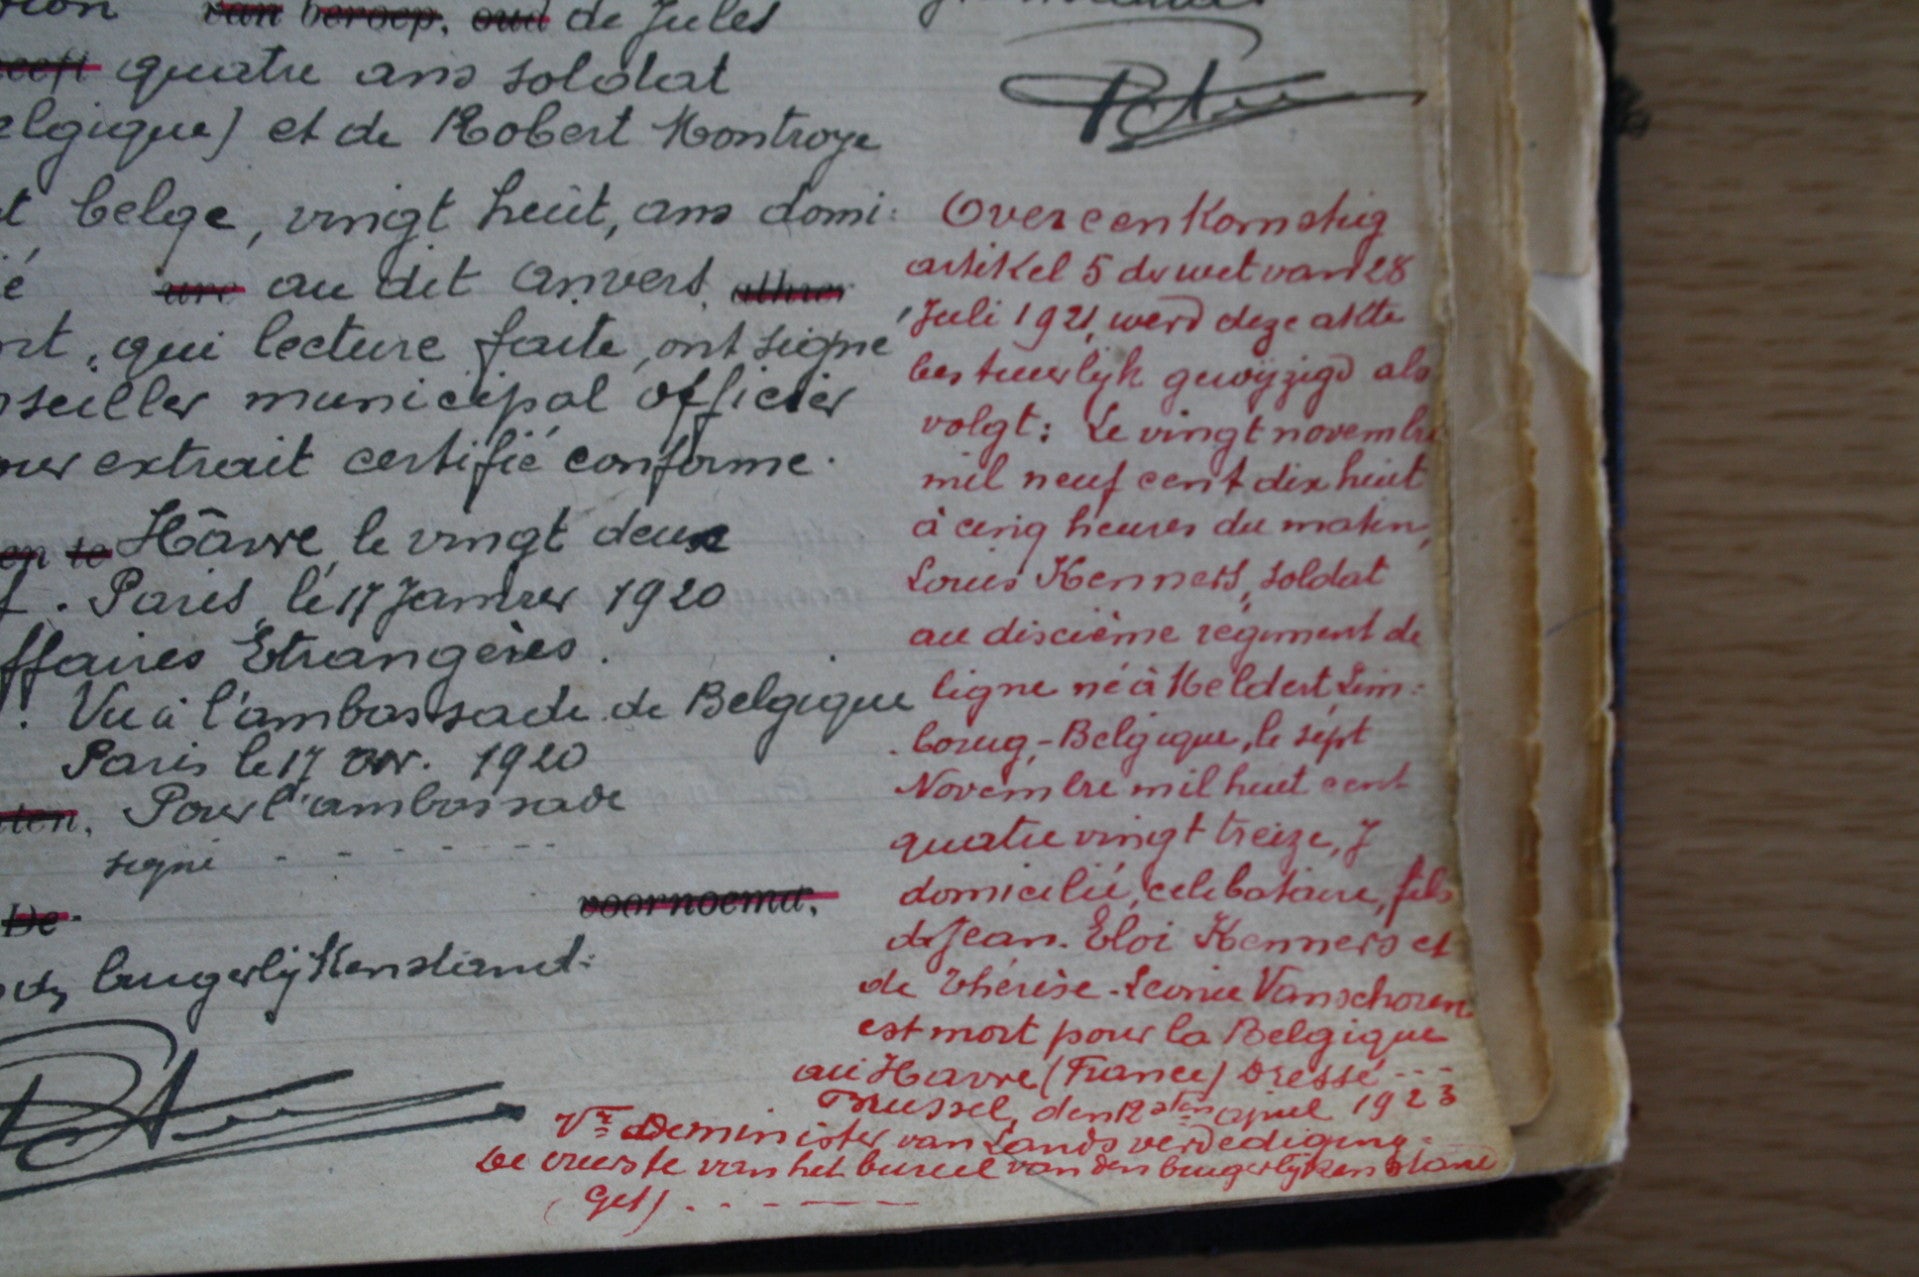 van beroep, oud de Jules
quatre ans soldat
elgique) et de Robert Montroye
belge, vingt huit, ans domi:
é ure au dit anvers
rt, qui lecture faite, ont signé
nseiller municipal officier
our extrait certifié conforme.
en te Hâvre, le vingt deux
f. Paris, le 17 Janvier 1920
ffaires Etrangères.
Vu à l'ambassade de Belgique
Paris le 17 1920
ten. Pour l'ambassade
signé - - - - - - - -
De voornoemd,
burgerlijken stand:
Overeenkomstig
artikel 5 der wet van 28
Juli 1921, werd deze akte
bestuurlijk gewijzigd als
volgt: Le vingt novembre
mil neuf cent dix huit
à cinq heures du matin,
Louis Kenners, soldat
au discième régiment de
ligne né à Heldert, Lim:
bourg, - Belgique, le sept
Novembre mil huit cent
quatre vingt treize, J
domicilié, celibataire, fils
de Jean. Eloi Kenners et
de Thérèse - Leonie Vanschoren
est mort pour la Belgique
au Havre (France) Dressé - - -
Brussel, den 12sten april 1923
Vr De minister van Landsverdediging.
De overste van het bureel van den burgerlijken stand
(Get) . - - - - - -